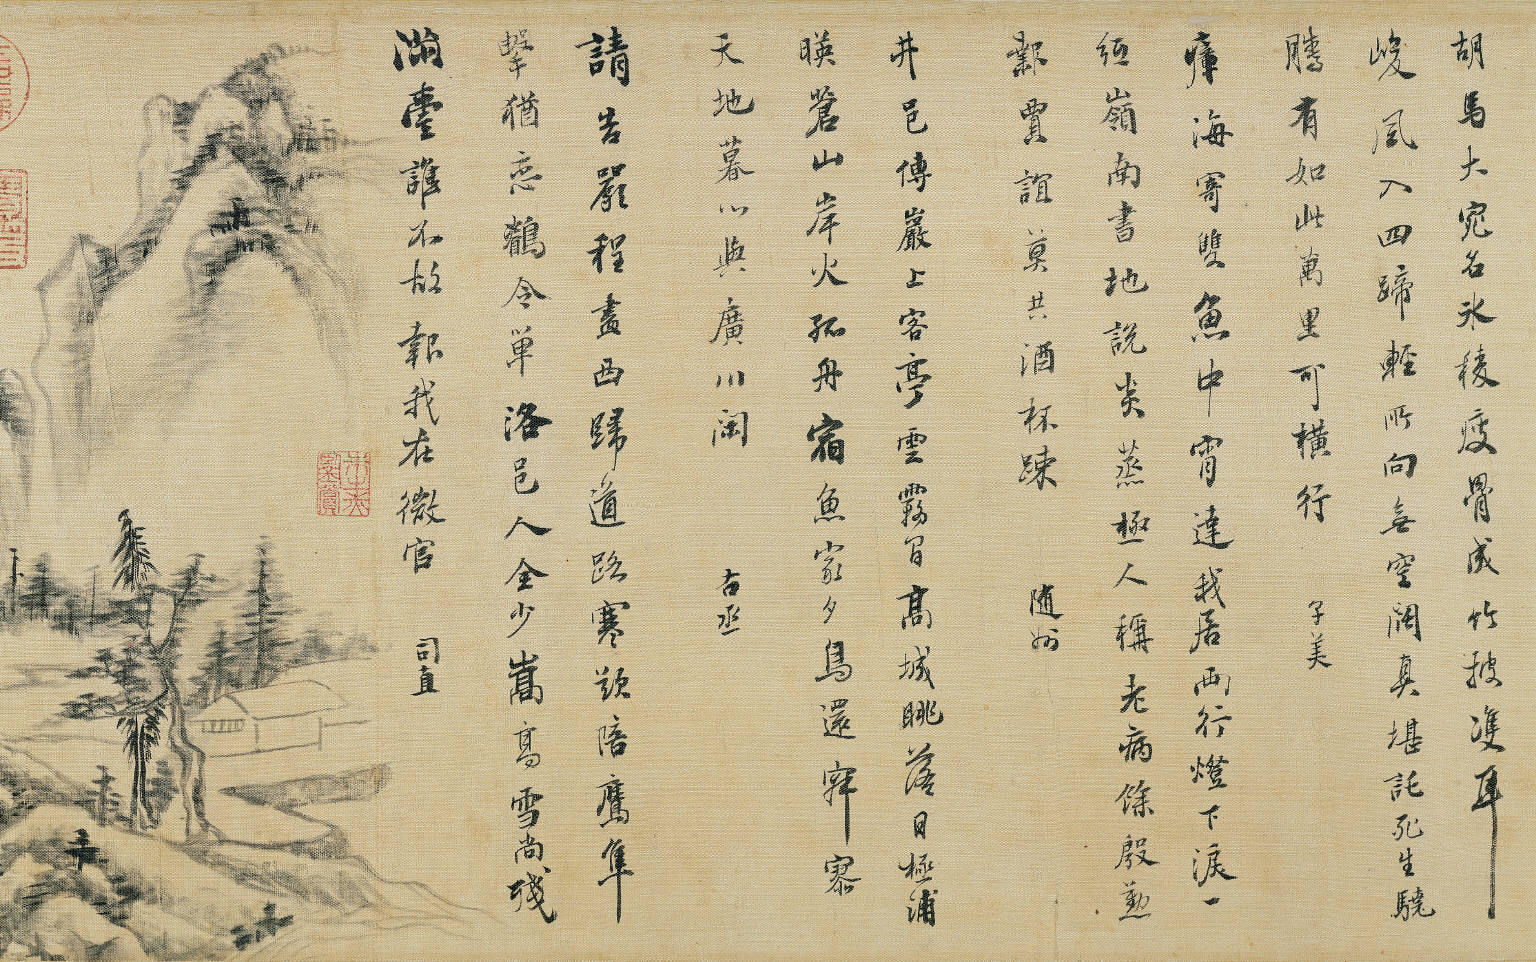 胡馬大宛名氷稜瘦骨成竹披雙耳
峻風入四蹄輕所向無空闊真堪託死生驍
騰有如此萬里可橫行 子美
瘴海寄雙魚中宵達我居兩行燈下淚一
紙嶺南書地說炎蒸極人稱老病餘殷勤
報賈誼莫共酒杯踈 随州
井邑傅巖上客亭雲霧間高城眺落日極浦
暎蒼山岸火孤舟宿魚家夕鳥還寂寥
天地暮心與廣川閑 右丞
請告嚴程盡西歸道路寒欵陪鷹隼
擊猶恋鶴令單洛邑人全少嵩高雪尚殘
滿臺誰不故報我在微官 司直